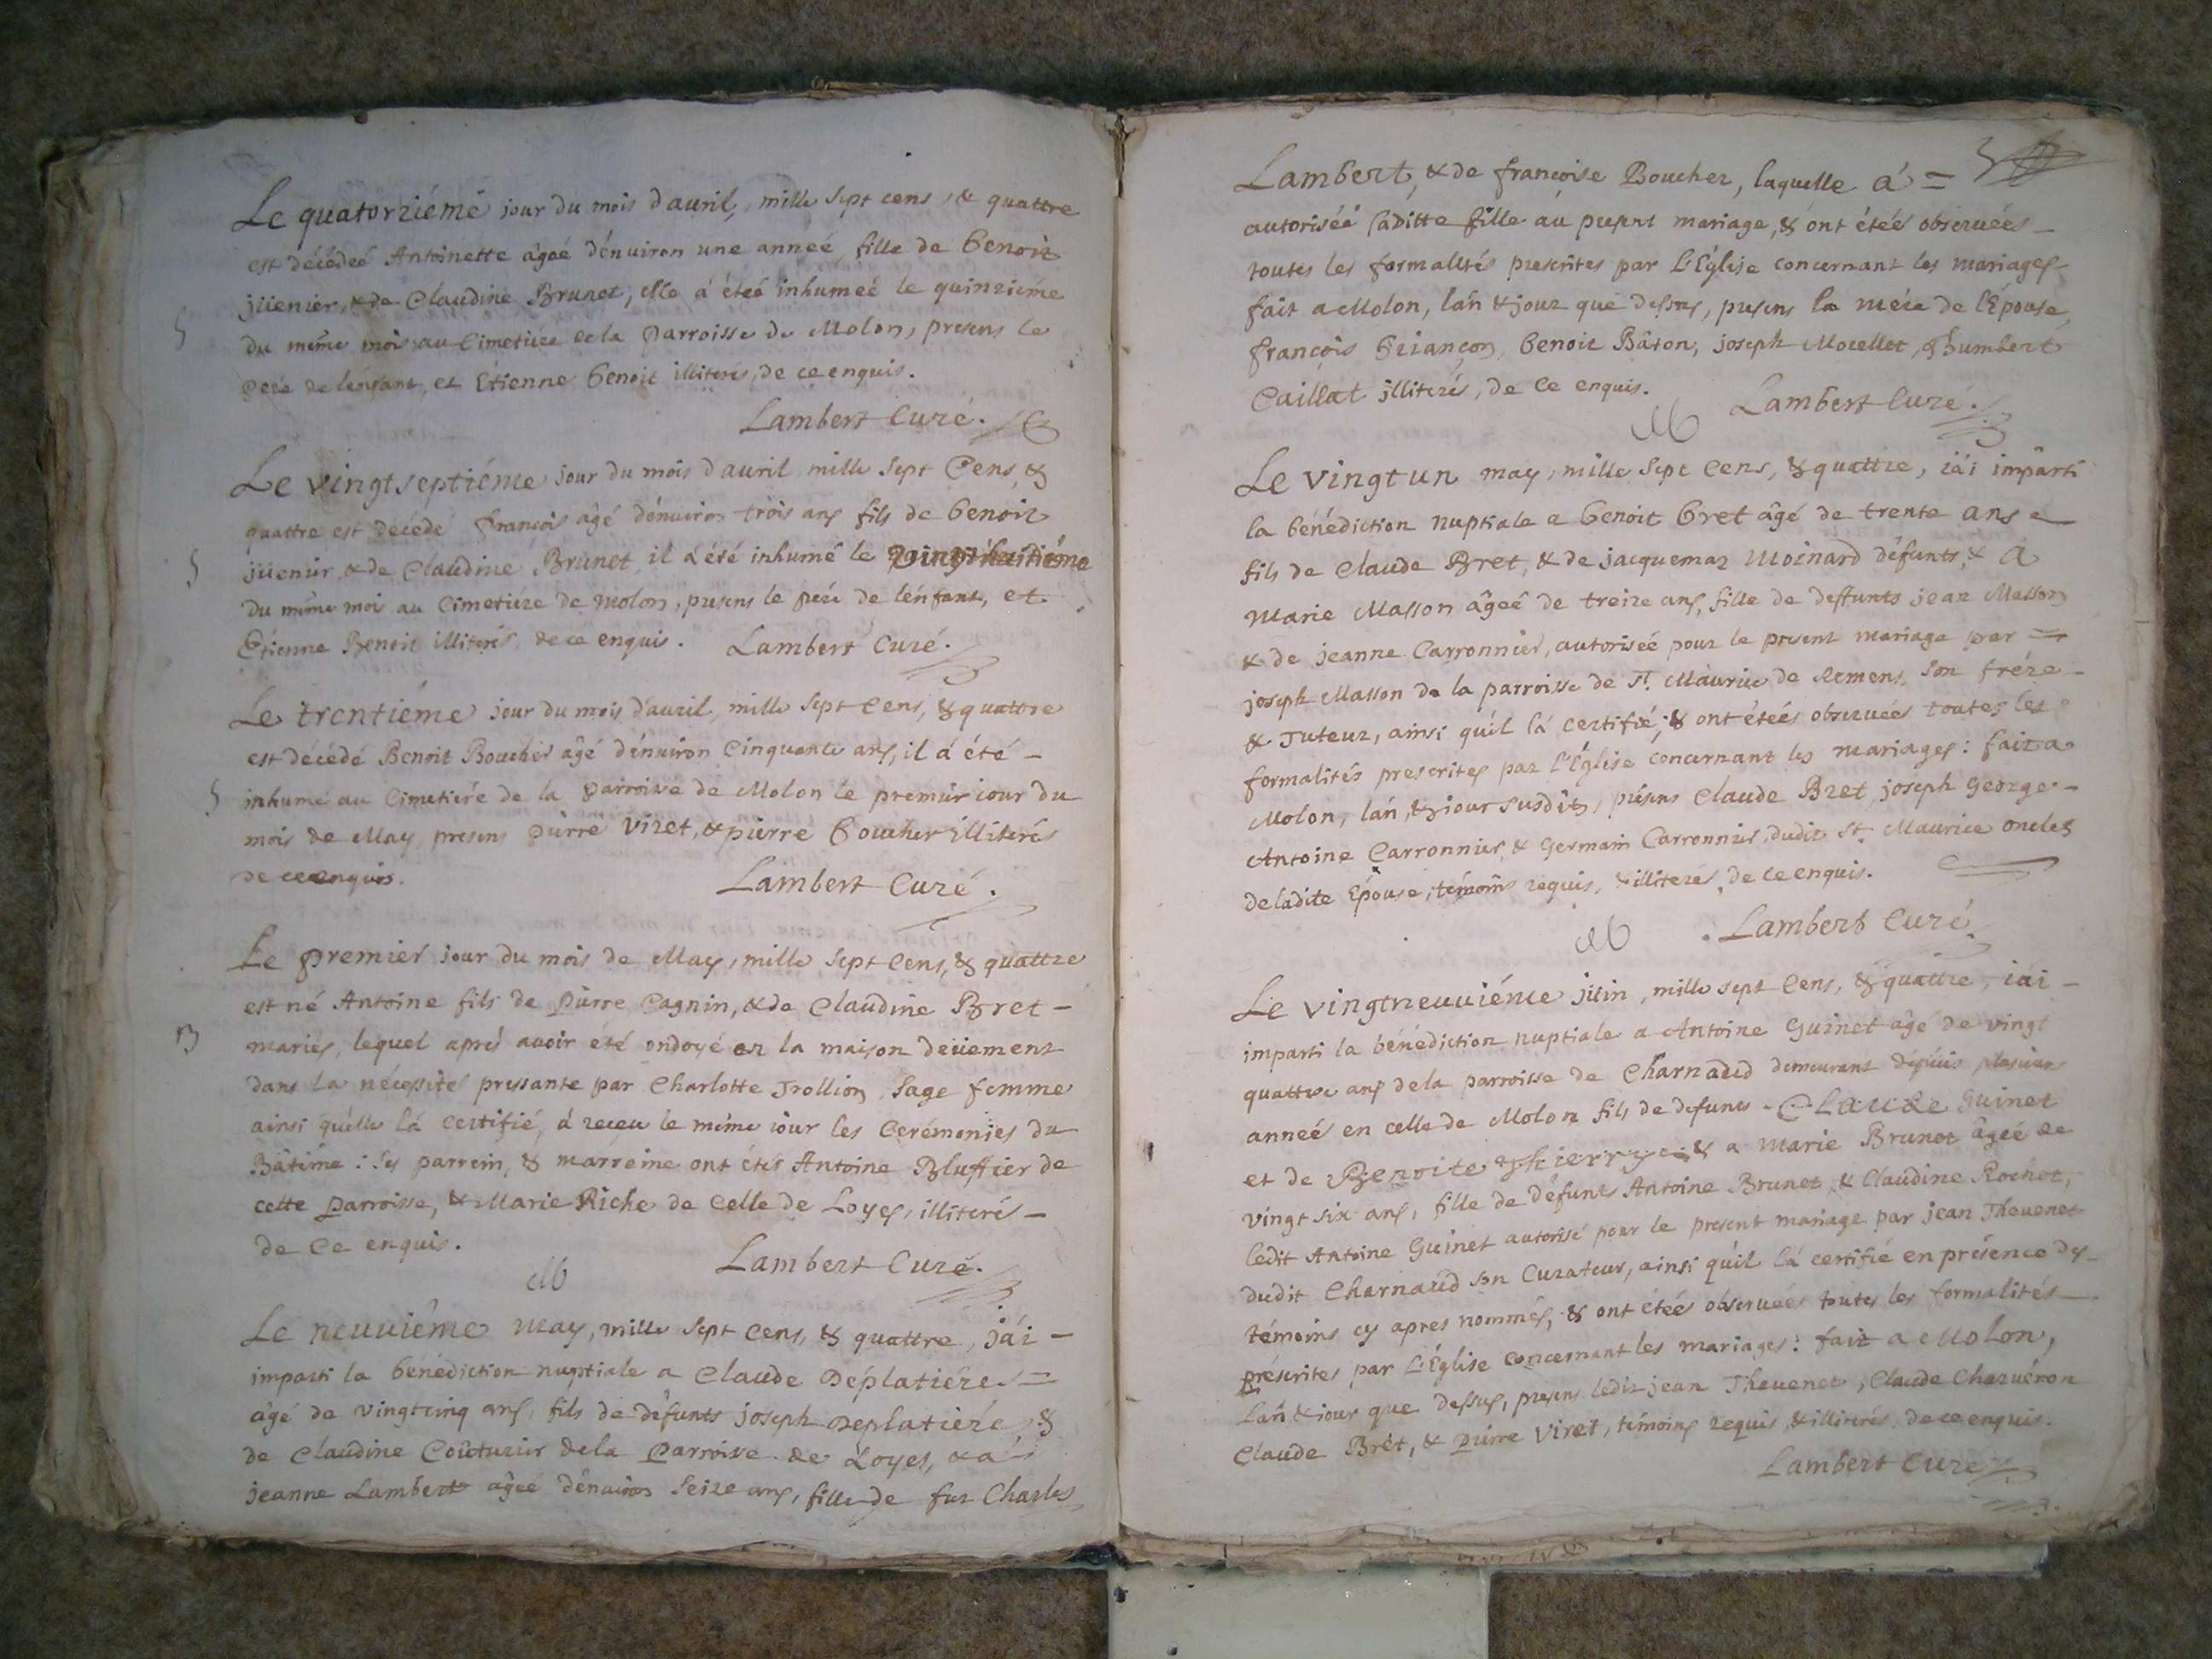 Le quatorziéme jour du mois d'auril, mille sept cens, & quattre
est décédeé Antoinette âgeé d'énuiron une anneé, fille de benoit
jüenier, & de Claudine Brunet, elle a éteé inhumeé le quinziéme
du méme mois au Cimetiére de la Parroisse de Molon, presens le
pére de l'énfant, et Etienne benoit illiterés, de ce enquis.
Lambert Curé.
Le vingtseptiéme jour du mois d'auril mille sept Cens, &
quattre est décédé françois âgé d'énuiron trois ans fils de benoit
jüenier, & de Claudine Brunet, il a été inhumé le vingthuitiéme
du méme mois au Cimetiére de molon, presens le pére de l'énfant, et
Etienne Benoit illiterés, de ce enquis. Lambert Curé.
Le trentiéme jour du mois d'auril, mille sept cens, & quattre
est décédé Benoit Boucher âgé d'énuiron Cinquante ans, il á été –
inhumé au Cimetiére de la parroisse de Molon le premier iour du
mois de May, presens pierre Viret, & pierre boucher illiterés
de ce enquis. Lambert Curé.
Le premier jour du mois de May, mille sept cens, & quattre
est né Antoine fils de pierre Cagnin, & de Claudine Bret –
B mariés, lequel aprés auoir été ondoyé en la maison deüement
dans la nécessité pressante par Charlotte Trollion, Sage femme
ainsi qu'elle l'á certifié, á receu le méme iour les Cerémonies du
Bâtême : ses parrein, & marreine ont étés Antoine Bluffier de
cette parroisse, & Marie Riche de celle de Loyes, illiterés –
de ce enquis. Lambert Curé.
Le neuuiême may, mille sept cens, & quattre, j'ái –
imparti la bénédiction nuptiale a Claude Déplatiére =
âgé de vingtcinq ans, fils de défunts joseph Deplatiére, &
de Claudine Coûturier de la Parroisse de Loyes, & á
jeanne Lambert âgeé d'énuiron Seize ans, fille de feu Charles
Lambert, & de françoise Boucher, laquelle á =
autoriséé saditte fille áu present mariage, & ont éteé obseruées –
toutes les formalités prescrites par L'Eglise concernant les mariages –
fait a Molon, lán & jour que dessus, presens la mére de l'Epouse,
françois briançon, benoit Bâton, joseph Morellet, & humbert
Caillat illiterés, de ce enquis.
Lambert Curé.
Le vingtun may, mille sept cens, & quattre, iái impârti
la bénédiction nuptiale a benoit bret âgé de trente ans
fils de Claude Bret, & de jacquemaz Moinard défunts, & a
Marie Masson âgeé de treize ans, fille de deffunts jean Masson
& de jeanne Carronnier, autoriseé pour le present mariage par =
joseph Masson de la parroisse de St. Maurice de Remens, son frére –
& Tuteur, ainsi qu'il l'á certifié, & ont étées obseruées toutes les
formalités prescrites par L'Eglise concernant les mariages : fait a
Molon, lán, & iour susdits, présens Claude Bret, joseph George –
Antoine Carronnier & Germain Carronnier, dudit St. Maurice oncles
de ladite Epouse, témoins requis, & illiterés, de ce enquis.
Lambert Curé.
Le vingtneuuiéme jüin, mille sept cens, & quattre, iái –
imparti la bénédiction nuptiale a Antoine Guinet âgé de vingt
quattre ans de la parroisse de Charnaud demeurant depüis plusieurs
anneés en celle de Molon fils de defunts Claude Guinet
et de Benoite Thierry & a Marie Brunet âgeé de
vingt six ans, fille de défunts Antoine Brunet, & Claudine Rochet,
ledit Antoine Guinet autorisé pour le present mariage par jean Theuenet
dudit Charnaud son Curateur, ainsi qu'il l'á certifié en présence des
témoins cy apres nommés, & ont étées obseruées toutes les formalités
préscrites par L'Eglise concernant les mariages : fait a Molon,
Lán & iour que dessus, presens ledit jean Theuenet, Claude Charuéron
Claude Brét, & pierre Viret, témoins requis & illiterés, de ce enquis.
Lambert Curé